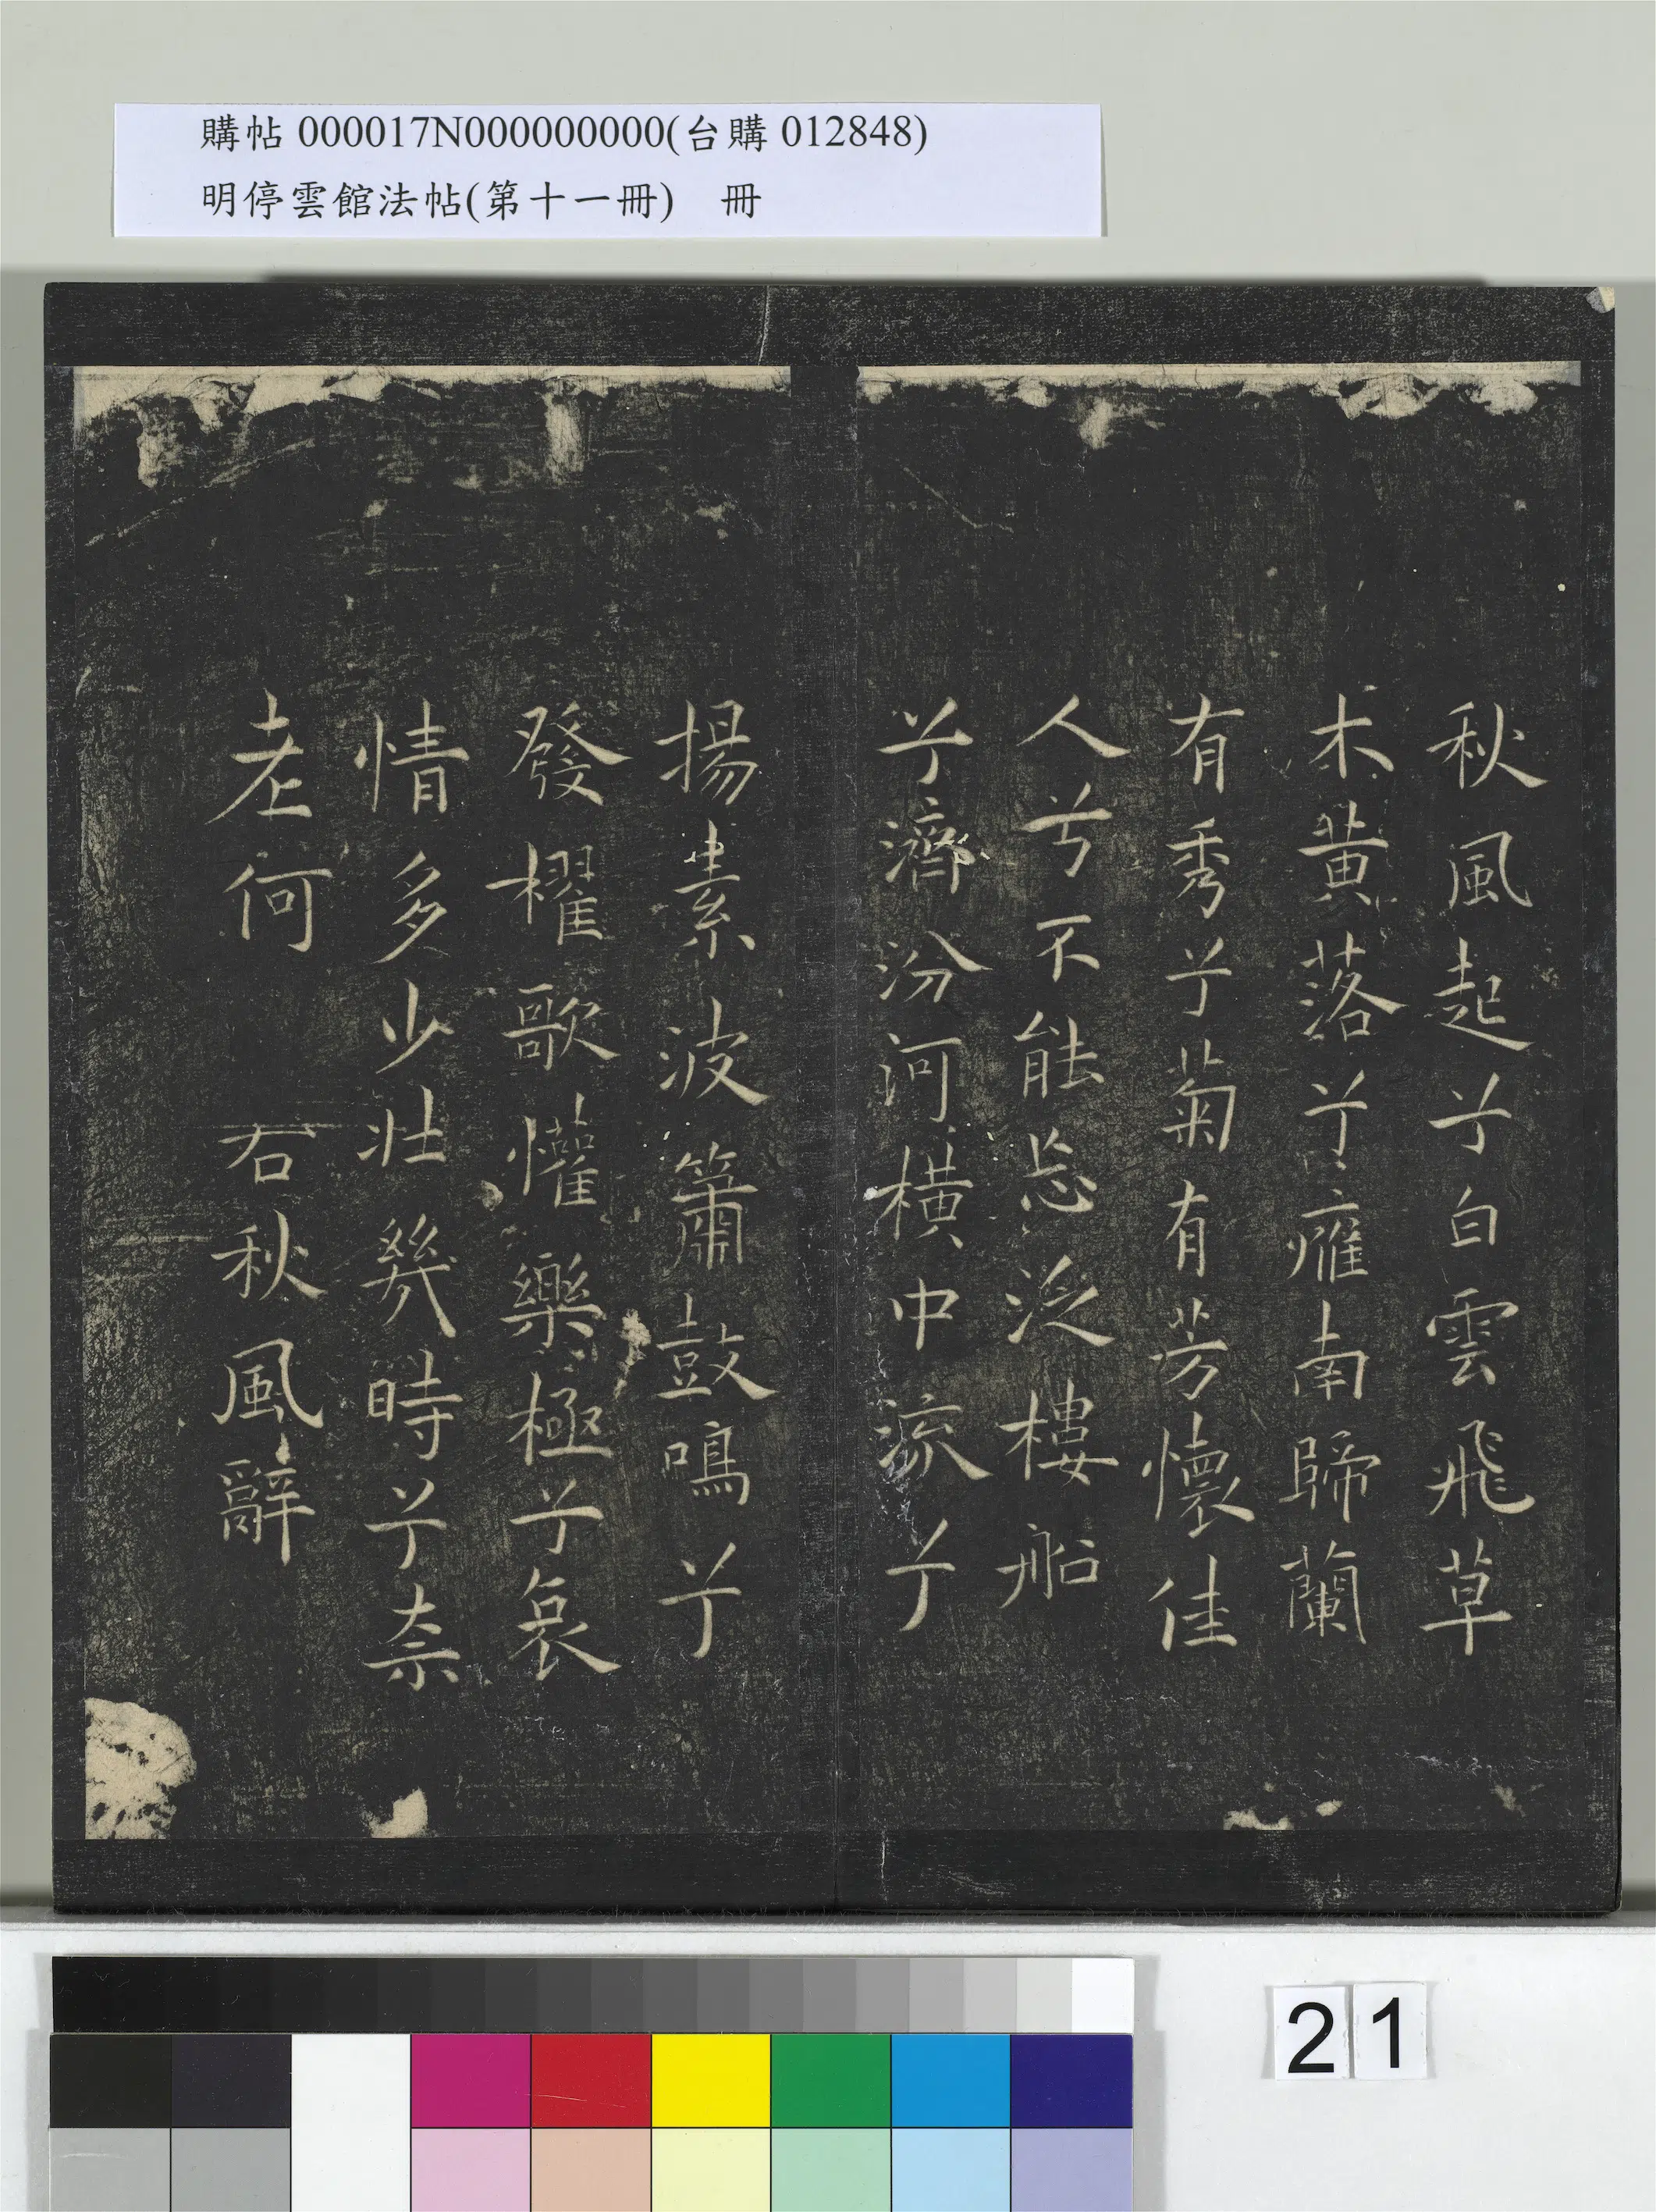 購帖 000017N000000000(台購 012848)
明停雲館法帖(第十一冊) 冊
秋風起兮白雲飛草
木黃落兮雁南歸蘭
有秀兮菊有芳懷佳
人兮不能忘泛樓船
兮濟汾河橫中流兮
揚素波簫鼓鳴兮
發櫂歌懽樂極兮哀
情多少壯幾時兮奈
老何 右秋風辭
21